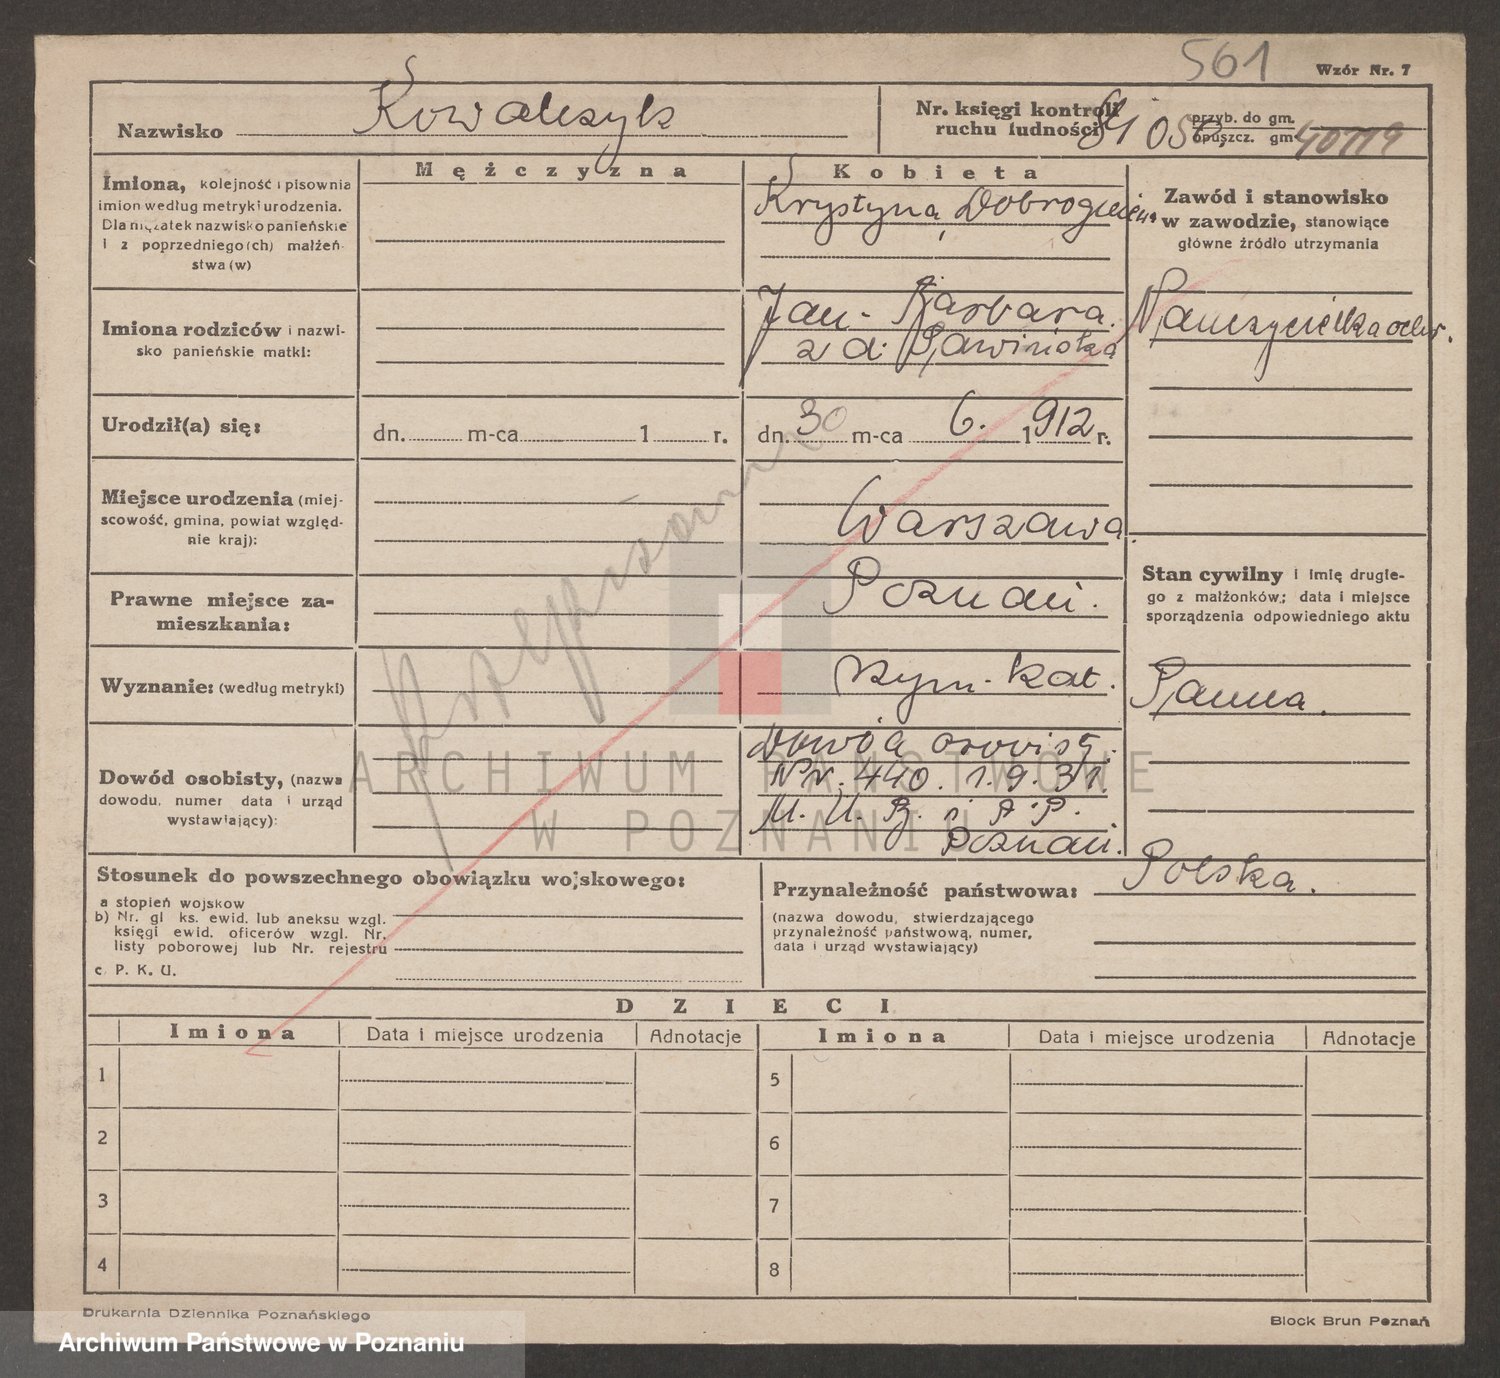 561
Wzór Nr. 7
Nazwisko Kowalczyk
Nr. księgi kontroli
ruchu ludności
przyb. do gm.
opuszcz. gm. 40719
Mężczyzna
Kobieta
Imiona, kolejność i pisownia
imion według metryki urodzenia.
Dla mężatek nazwisko panieńskie
i z poprzedniego(ch) małżeń-
stwa(w)
Krystyna, Dobrogniewa
Zawód i stanowisko
w zawodzie, stanowiące
główne źródło utrzymania
Nauczycielka ochr.
Imiona rodziców i nazwi-
sko panieńskie matki:
Jan - Barbara.
z d.
Urodził(a) się:
dn. m-ca 1 r.
dn. 30 m-ca 6. 1912 r.
Miejsce urodzenia (miej-
scowość, gmina, powiat względ-
nie kraj):
Warszawa.
Prawne miejsce za-
mieszkania:
Poznań.
Stan cywilny i imię drugie-
go z małżonków; data i miejsce
sporządzenia odpowiedniego aktu
Panna.
Wyznanie: (według metryki)
rzym-kat.
Dowód osobisty, (nazwa
dowodu, numer data i urząd
wystawiający):
Dowód osobisty.
Nr. 440. 1.9.31.
Poznań.
Stosunek do powszechnego obowiązku wojskowego:
a stopień wojskow
b) Nr. gl ks. ewid. lub aneksu wzgl.
księgi ewid. oficerów wzgl. Nr.
listy poborowej lub Nr. rejestru
c. P. K. U.
Przynależność państwowa: Polska.
(nazwa dowodu, stwierdzającego
przynależność państwową, numer,
data i urząd wystawiający)
DZIECI
Imiona Data i miejsce urodzenia Adnotacje Imiona Data i miejsce urodzenia Adnotacje
1 5
2 6
3 7
4 8
Drukarnia Dziennika Poznańskiego
Block Brun Poznań
ARCHIWUM PAŃSTWOWE
W POZNANIU
Archiwum Państwowe w Poznaniu